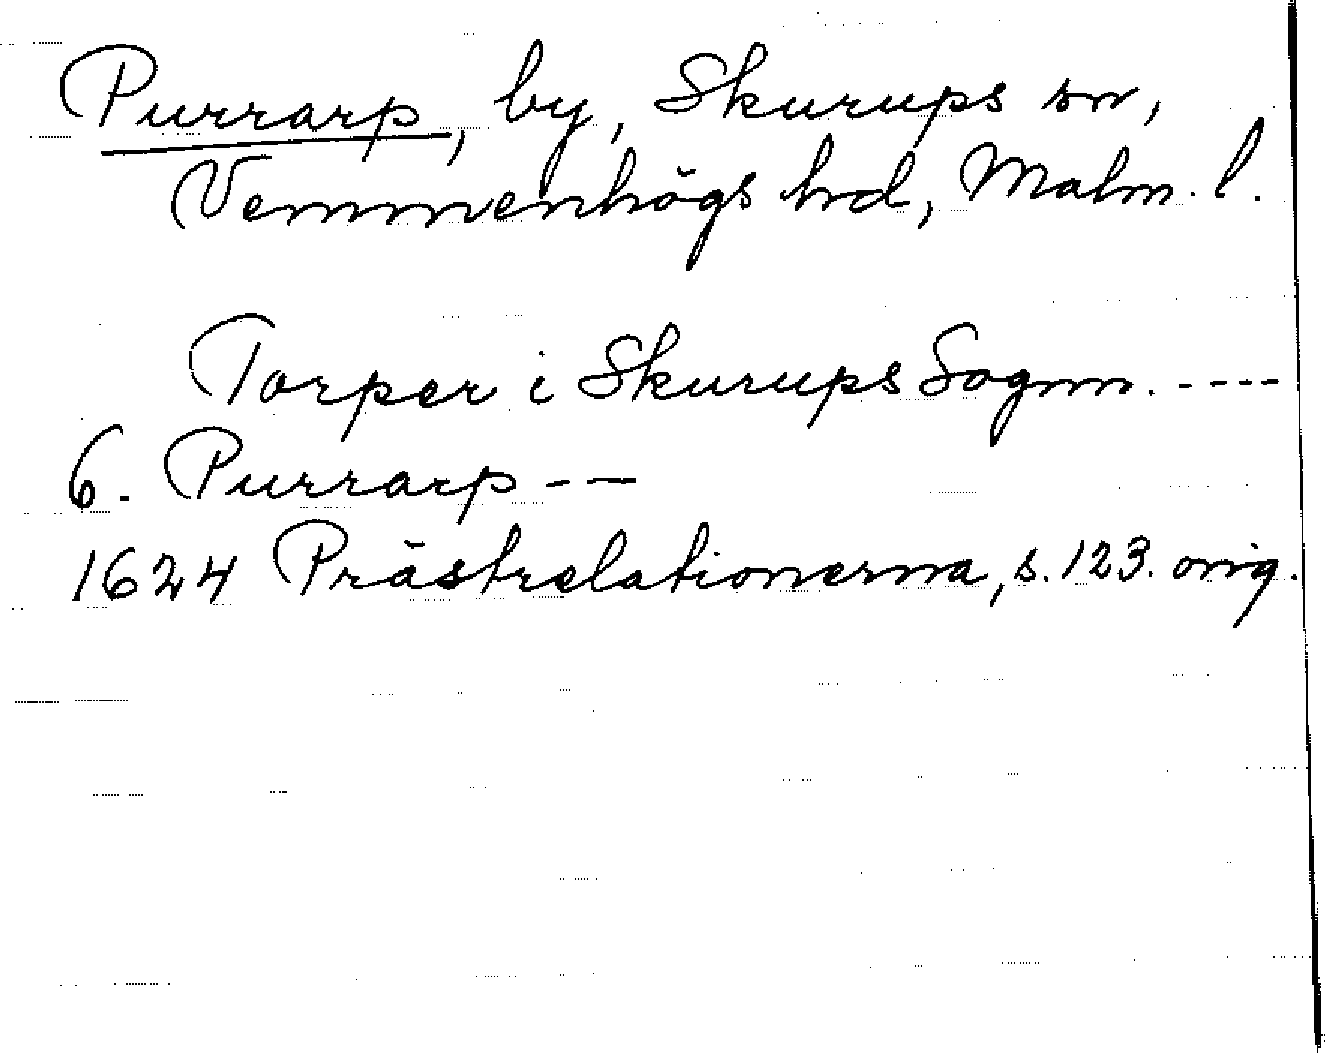 Purrarp, by, Skurups sn,
Vemmenhögs hd, Malm. l.
Torper i Skurups Sognn. ----
6. Purrarp ---
1624 Prästrelationerna, s. 123. orig.